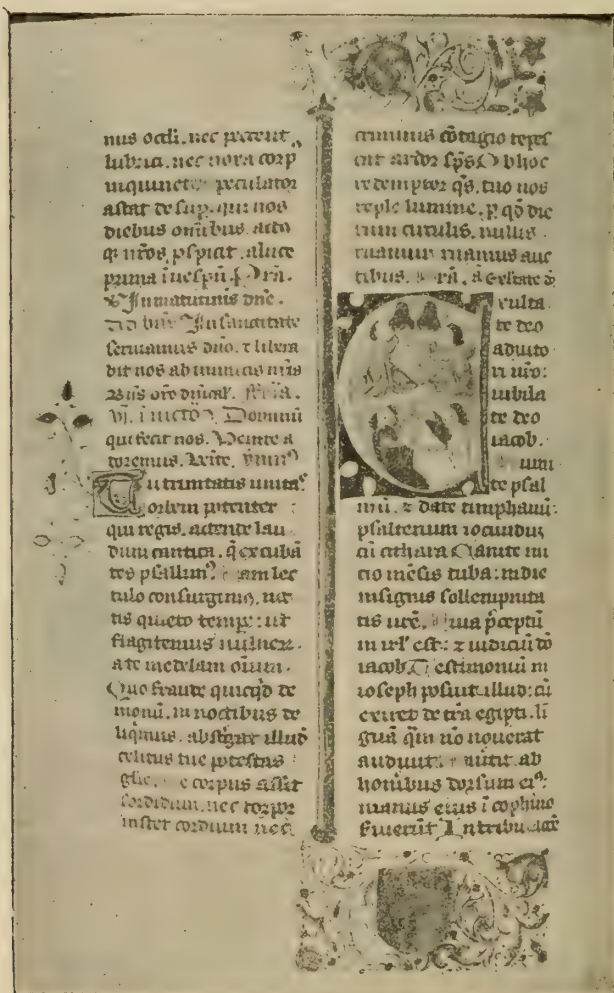 nus oculi. nec peccent
lubrici. nec noxa corp
inquinet. speculator
astat desup. qui nos
diebus omībus. acto
q̄ nr̄os. pspicit. a luce
prima ī vespū
℣ In matutinis dn̄e.
In sanctitate
serviamus dn̄o. ⁊ libera
bit nos ab inimicis nr̄is
qui fecit nos. Venite a
doremus. Veīte.
Tu trinitatis unitas
orbem potenter
qui regis. actende lau
dum cantica. q̄ excubā
tes psallim⁹. am lec
tulo consurgim⁹. noc
tis quieto tempe: ut
flagitemus vulner.
a te medelam oīum.
Quo fraude quicq̄d de
monū. in noctibus de
liqimus. abst̄gat illud
celitus tue potestas
gl̄ie. e corpus assit
sordidum. nec torpor
instet cordium nec
criminis cōtagio tepes
cat ardor sp̄s Ob hoc
redemptor q̄s. tuo nos
reple lumine. p̄ q̄d die
rum circulis. nullis
ruamus actibus.
Exulta
te deo
adiuto
ri nr̄o:
iubila
te deo
iacob.
umi
te psal
mū. ⁊ date timphanū:
psalterium iocundū
cū cithara Canite ini
cio mēsis tuba: in die
insignis sollempnita
tis vr̄e. uia p̄ceptū
in irl̄ est: ⁊ iudiciū dō
iacob. Testimoniū in
ioseph posuit illud: cū
exiret de tr̄a egipti. li
guā quā nō noverat
audivit. vtit ab
honibus dorsum ei⁹:
manus eius ī cophino
s̄vierūt In tribulacōe